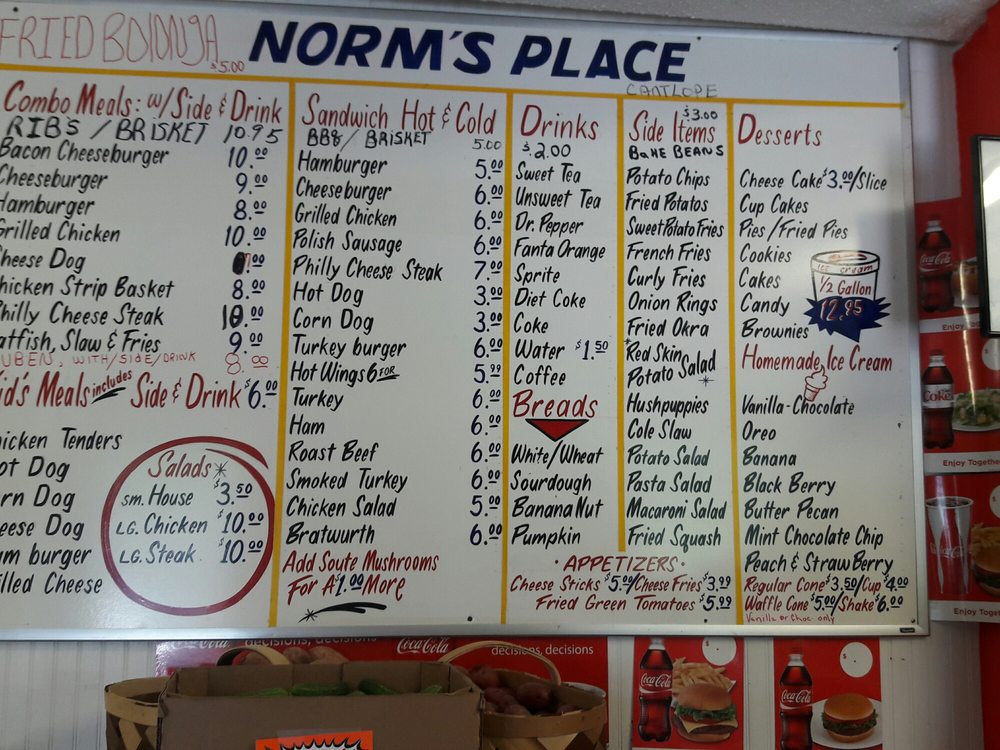 FRIED BOLONJA
$5.00
NORM'S PLACE
CANTLOPE
Combo Meals: w/Side & Drink
RIB'S / BRISKET 10.95
Bacon Cheeseburger 10.00
Cheeseburger 9.00
Hamburger 8.00
Grilled Chicken 10.00
Cheese Dog .00
Chicken Strip Basket 8.00
Philly Cheese Steak 10.00
Catfish, Slaw & Fries 9.00
RUBEN, WITH/SIDE/DRINK 8.00
Kid's Meals includes Side & Drink $6.00
Chicken Tenders
Hot Dog
Corn Dog
Cheese Dog
Ham burger
Grilled Cheese
Salads
Sm. House $3.50
LG. Chicken $10.00
LG. Steak $10.00
Sandwich Hot & Cold
BBQ / BRISKET 5.00
Hamburger 5.00
Cheeseburger 6.00
Grilled Chicken 6.00
Polish Sausage 6.00
Philly Cheese Steak 7.00
Hot Dog 3.00
Corn Dog 3.00
Turkey burger 6.00
Hot Wings 6 FOR 5.99
Turkey 6.00
Ham 6.00
Roast Beef 6.00
Smoked Turkey 6.00
Chicken Salad 5.00
Bratwurth 6.00
Add Soute Mushrooms
For A $1.00 More
Drinks
$2.00
Sweet Tea
Unsweet Tea
Dr. Pepper
Fanta Orange
Sprite
Diet Coke
Coke
Water $1.50
Coffee
Breads
White/Wheat
Sourdough
Banana Nut
Pumpkin
Side Items $3.00
BAKE BEANS
Potato Chips
Fried Potatos
Sweet Potato Fries
French Fries
Curly Fries
Onion Rings
Fried Okra
Red Skin
Potato Salad
Hushpuppies
Cole Slaw
Potato Salad
Pasta Salad
Macaroni Salad
Fried Squash
• APPETIZERS •
Cheese Sticks $5.00/Cheese Fries $3.99
Fried Green Tomatoes $5.99
Desserts
Cheese Cake $3.00/Slice
Cup Cakes
Pies / Fried Pies
Cookies
Cakes
Candy
Brownies
ICE CREAM
1/2 Gallon
12.95
Homemade Ice Cream
Vanilla - Chocolate
Oreo
Banana
Black Berry
Butter Pecan
Mint Chocolate Chip
Peach & Straw Berry
Regular Cone $3.50/Cup $4.00
Waffle Cone $5.00/Shake $6.00
Vanilla or Choc only
Coca-Cola
Enjoy Tog
Coke
Enjoy Together
Coca-Cola
Enjoy Toge
Coca-Cola
decisions, decisions
Coca-Cola
decisions, decisions
Coca-Cola
Coca-Cola